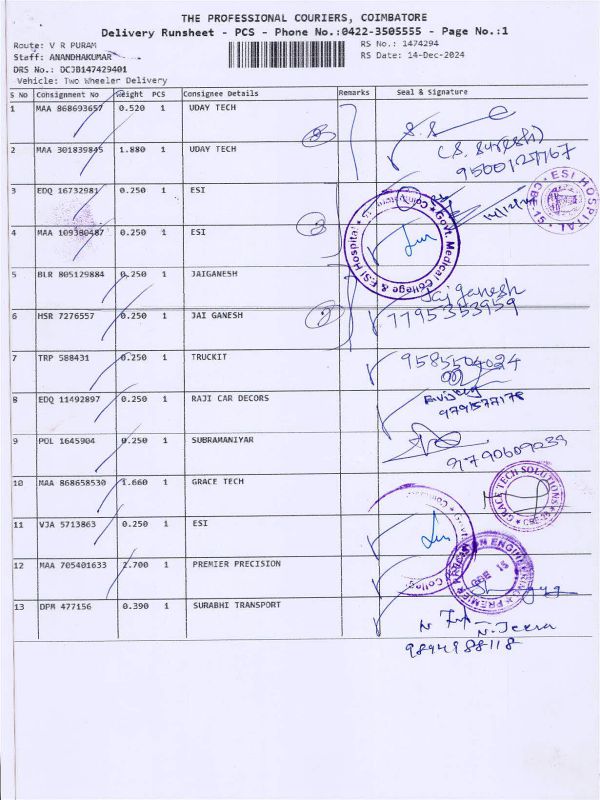 THE PROFESSIONAL COURIERS, COIMBATORE
Delivery Runsheet - PCS - Phone No.:0422-3505555 - Page No.:1
Route: V R PURAM RS No.: 1474294
Staff: ANANDHAKUMAR RS Date: 14-Dec-2024
DRS No.: DCJB147429401
Vehicle: Two Wheeler Delivery
S No Consignment No Weight PCS Consignee Details Remarks Seal & Signature
1 MAA 868693657 0.520 1 UDAY TECH
(S. Suresh)
2 MAA 301839845 1.880 1 UDAY TECH
3 EDQ 16732981 0.250 1 ESI
ESI HOSPITAL CBE-15
4 MAA 109380487 0.250 1 ESI
Govt. Medical College & ESI Hospital Coimbatore
5 BLR 805129884 0.250 1 JAIGANESH Jai ganesh
6 HSR 7276557 0.250 1 JAI GANESH 7795353959
7 TRP 588431 0.250 1 TRUCKIT 9585504024
8 EDQ 11492897 0.250 1 RAJI CAR DECORS
9791577178
9 POL 1645904 0.250 1 SUBRAMANIYAR
10 MAA 868658530 1.660 1 GRACE TECH GRACE TECH SOLUTIONS
11 VJA 5713863 0.250 1 ESI
12 MAA 705401633 2.700 1 PREMIER PRECISION PREMIER PRECISION ENGINEERING
13 DPM 477156 0.390 1 SURABHI TRANSPORT
9894988118